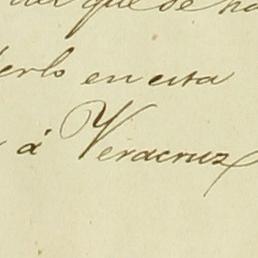 que se ha
en esta
á Veracruz